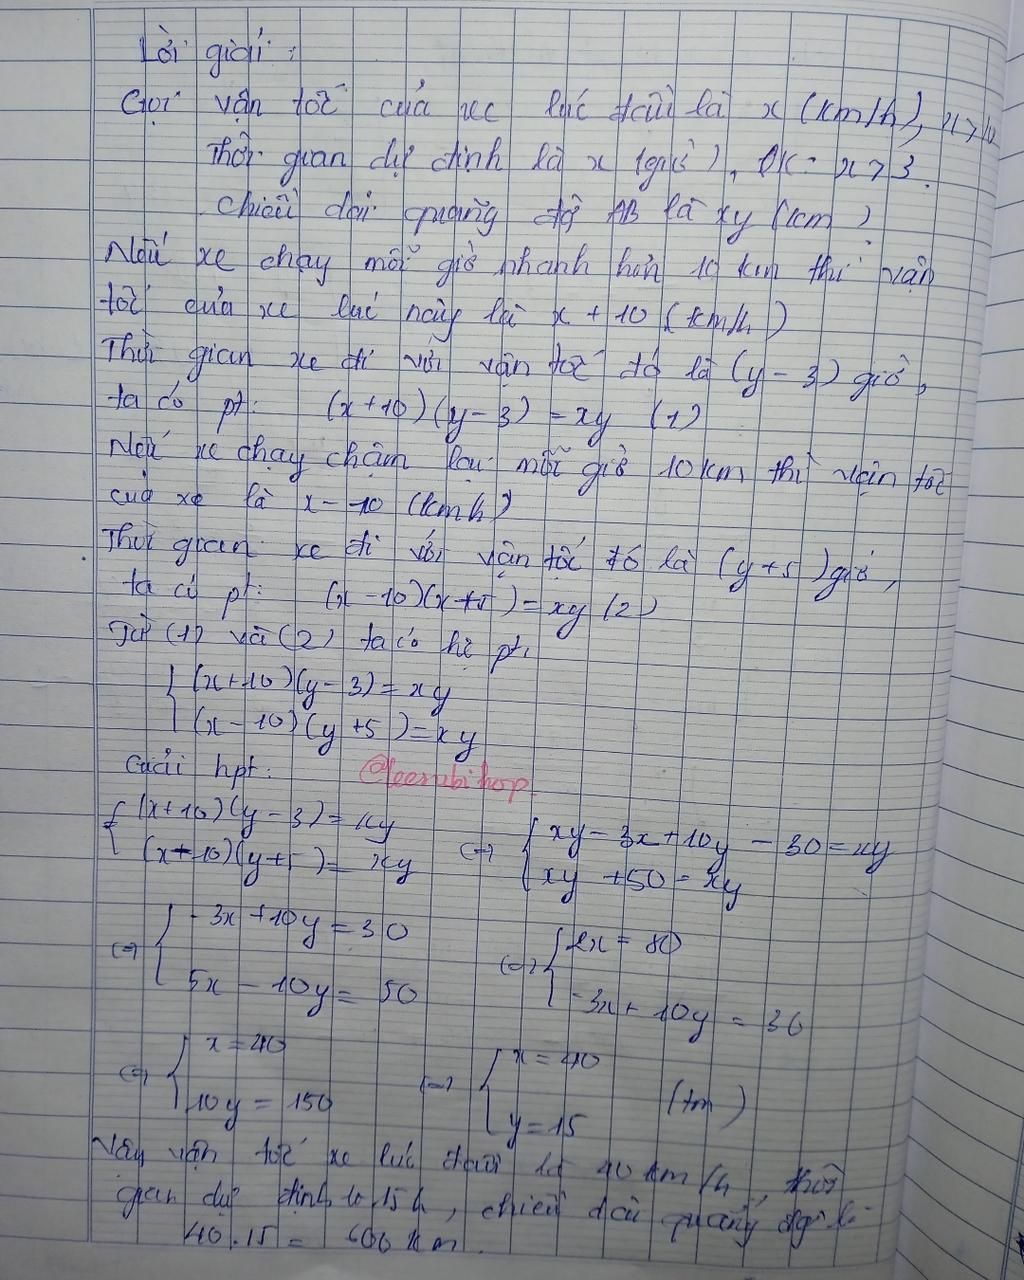 Lời giải :
Gọi vận tốc của xe lúc đầu là x (km/h), x > 10
Thời gian dự định là x (giờ), ĐK: x > 3.
chiều dài quãng đg AB là xy (km)
Nếu xe chạy mỗi giờ nhanh hơn 10 km thì vận
tốc của xe lúc này là x + 10 (km/h)
Thời gian xe đi với vận tốc đó là (y - 3) giờ,
ta có pt: (x+10)(y-3) = xy (1)
Nếu xe chạy chậm lại mỗi giờ 10 km thì vận tốc
của xe là x - 10 (kmh)
Thời gian xe đi với vận tốc đó là (y+5) giờ,
ta có pt: (x-10)(x+5) = xy (2)
Từ (1) và (2) ta có hệ pt,
{ (x+10)(y-3) = xy
(x-10)(y+5) = xy
Giải hpt: @leesubihop.
{ (x+10)(y-3) = xy
(x+10)(y+5) = xy
<=> { xy - 3x + 10y - 30 = xy
xy + 50 = xy
<=> { -3x + 10y = 30
5x - 10y = 50
<=> { 2x = 80
-3x + 10y = 30
<=> { x = 40
10y = 150
<=> { x = 40
y = 15 (tm)
Vậy vận tốc xe lúc đầu là 40 km/h, thời
gian dự định là 15h, chiều dài quãng đg là
40.15 = 600 km.